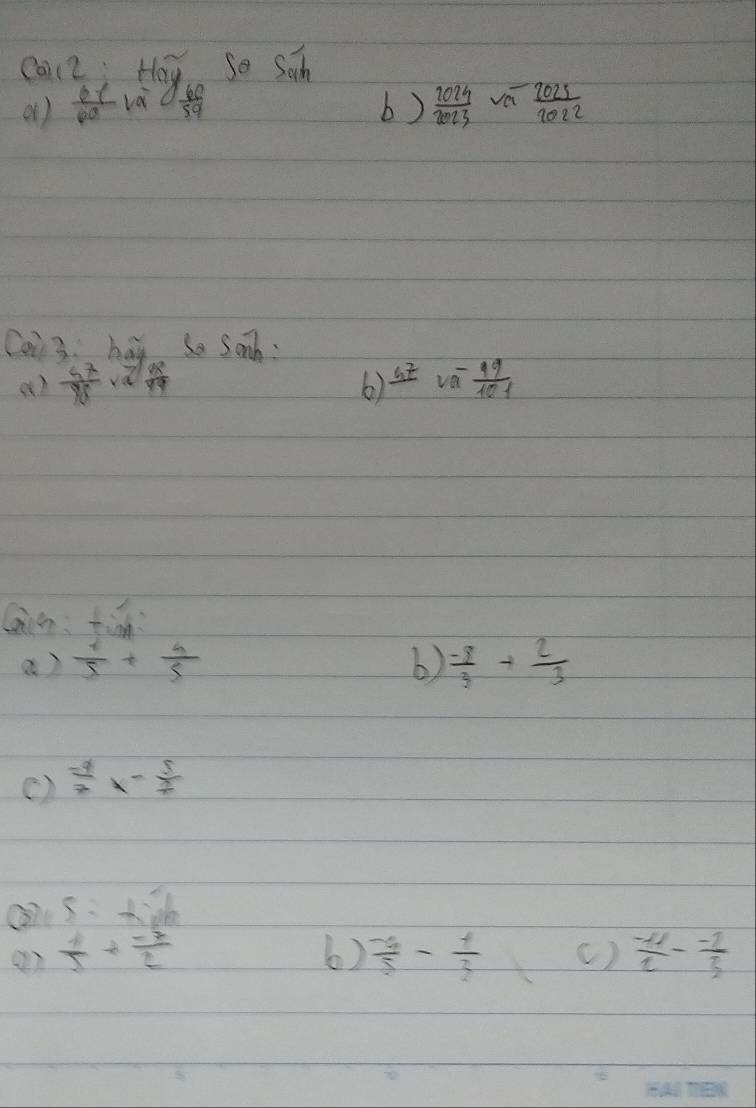 Câu 2: Hãy so sánh
a) 61/60 và 60/59 b) 2024/2023 và 2023/2022
Câu 3: hãy so sánh:
a) 47/98 và 48/99 b) 47 và 99/101
Câu 4: tính:
a) 1/5 + 4/5 b) -8/3 + 2/3
c) x -5/7
Câu 5: tính
a) 1/5 + /2 b) -4/5 - 1/3 c) -11/2 - /3
HẢI TIẾN